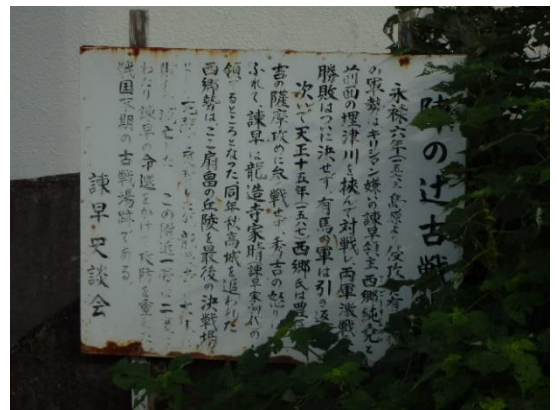 陣の辻古戦
永禄六年(一五六三)島原より侵攻の有
の軍勢はキリシタン嫌いの諫早領主西郷純尭と
前面の埋津川を挟んで対戦し両軍激戦
勝敗はついに決せず有馬の軍は引き返
次いで天正十五年(一五八七)西郷氏は豊
吉の薩摩攻めに参戦せず秀吉の怒り
ふれて、諫早は龍造寺家晴(諫早家初代)の
領するところとなった同年秋高城を追われた
西郷勢はここ扇畠の丘陵を最後の決戦場
した この附近一帯は二
わたり諫早の命運をかけ 攻防を重ねた
戦国末期の古戦場跡である
諫早史談会